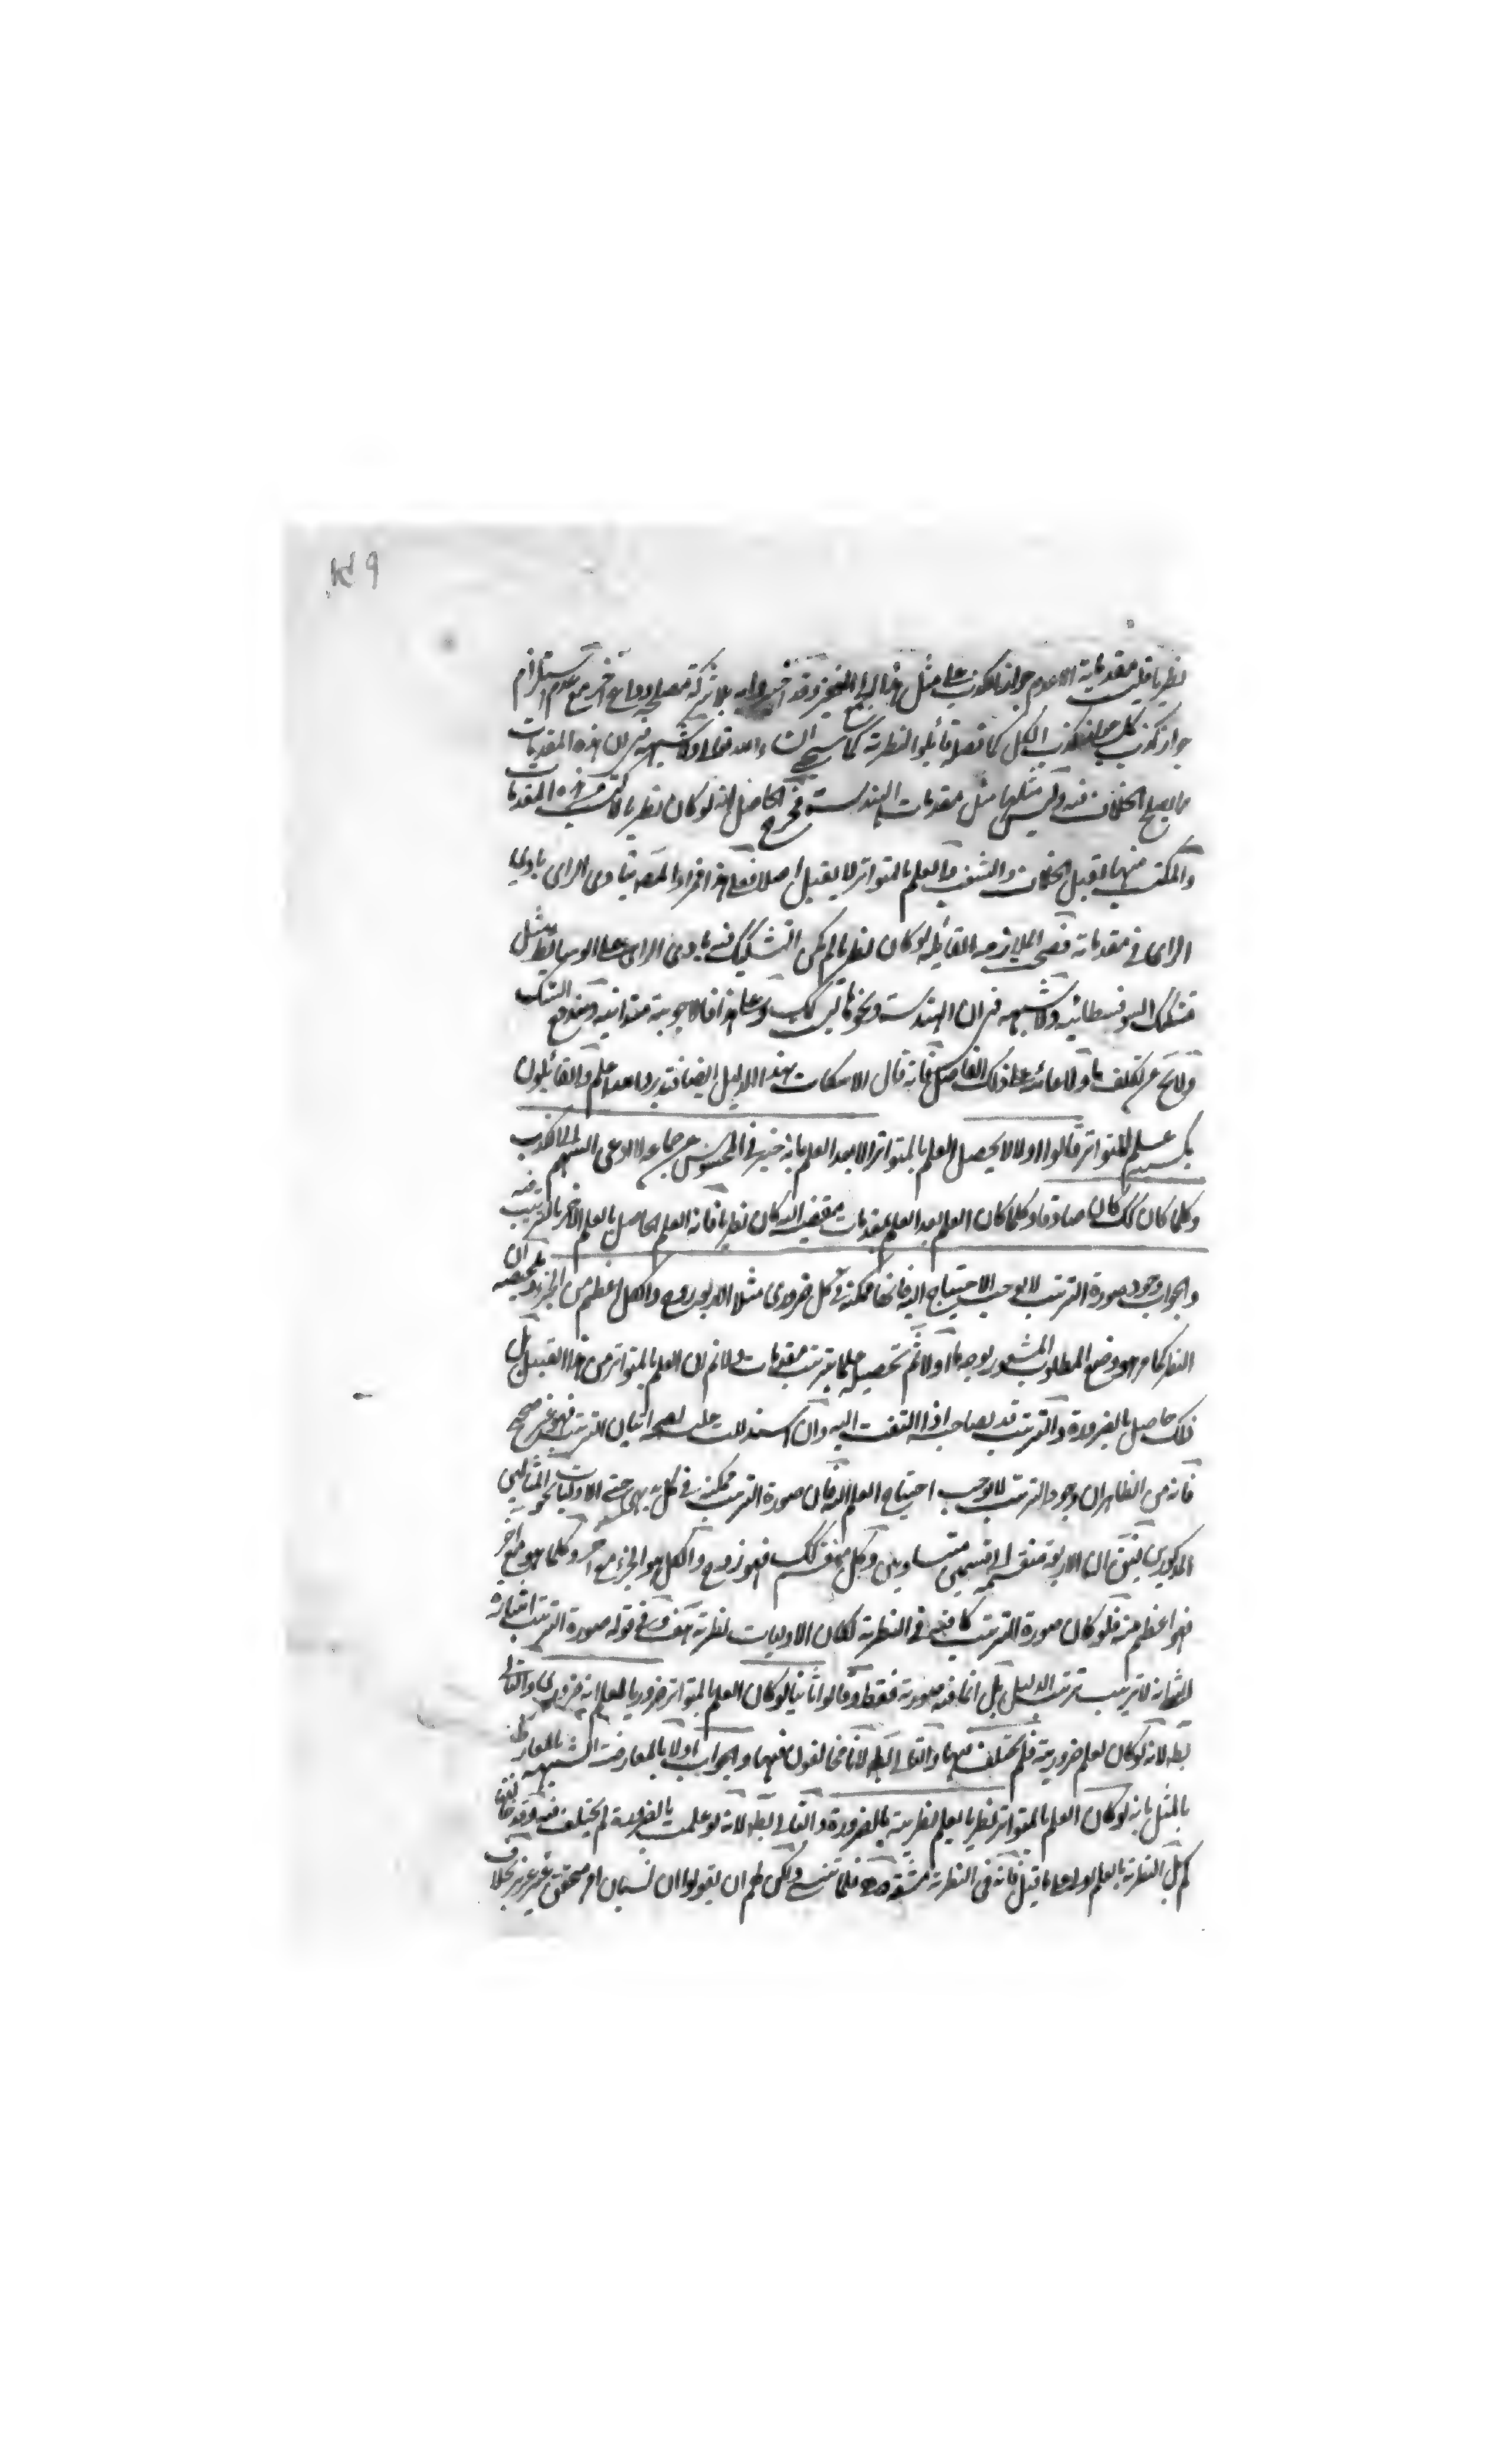 نظريا فليت مقدماته الا عدم جواز الكذب على مثل هذا
جواز كذب كل جواز كذب الكل كما فصله قائلو النظرية كما سيجئ انشاء الله تعالى ولا شبهة في ان هذه المقدمات
ما يصلح الخلاف فيه وليس مثلها مثل مقدمات الهندسة فخرج الحاصل انه لو كان نظريا لاكتسب من هذه المقدمات
والمكتسب منها يقبل الخلاف والشغب والعلم بالمتواتر لا يقبل اصلا فعلى هذا المراد بالمصنف بادى الراى بادى
الراى في مقدماته فصح الملازمة القائلة لو كان نظريا لم يكن التشكيك فيه بادى الراى على الوسائط مثل
تشكيك السوفسطائية ولا شبهة في ان الهندسة ونحوها ليس كك وعلى هذا فالاجوبة متدانية ويندفع الشك
ولا يخ عن تكلف ما ولا عائد على ذلك الفاضل فانه قال الاسكات بهذا الدليل ايضا فتدبر والله اعلم والقائلون
بكسبية علم المتواتر قالوا اولا لا يحصل العلم بالمتواتر الا بعد العلم بانه خبر في المحسوس عن جماعة لا داعى لهم الى الكذب
وكلما كان كك كان صادقا وكلما كان العلم بعد العلم بمقدمات مقتضية اليه كان نظريا فانه العلم الحاصل بالعلم الاخر بالترتيب فيه
والجواب وجود صورة الترتيب لا يوجب الاحتياج اليه فانها ممكنة في كل ضرورى مثلا الاربعة زوج والكل اعظم من الجزء وتلخيصه ان
النظر كما مر هو وضع المطلوب المشعور بوجه ما اولا ثم تحصيل علم بترتيب مقدمات ولا نم ان العلم بالمتواتر من هذا القبيل بل
ذلك حاصل بالضرورة والترتيب قد يصاحبه اذا التفت اليه وان استدللت عليه بصحة اتيان الترتيب فهو غير صحيح
فانه من الظاهر ان وجود الترتيب لا يوجب احتياج العلم اليه فان صورة الترتيب ممكنة في كل بديهى حتى الاوليات نحو المثالين
المذكورين فيق ان الاربعة منقسمة الى قسمين متساويين وكل منقسم كك فهو زوج والكل هو الجزء مع اخر وكلما هو مع اخر
فهو اعظم منه فلو كان صورة الترتيب كافية في النظرية لكان الاوليات نظرية هف وفي قوله صورة الترتيب اشارة
الى انه لا ترتيب ترتيب الدليل بل انما فيه صورته فقط وقالوا ثانيا لو كان العلم بالمتواتر ضروريا لعلم انه ضرورى والتالى
بط لانه لو كان لعلم ضروريته فلم يختلف فيها والتالى بط لانا مخالفون فيها والجواب اولا بالمعارضة الشبيهة بالمعارضة
بالمثل بانه لو كان العلم بالمتواتر نظريا يعلم نظريته بالضرورة والتالى بط لانه لو علمت بالضرورة لم يختلف فيه وقد خالفنا
كم بل النظرية بالعلم اولى ما قيل فانه في النظرية مشقة فلما تنسى ولكن لهم ان يقولوا ان نسيان امر متحقق غير عزيز بخلاف